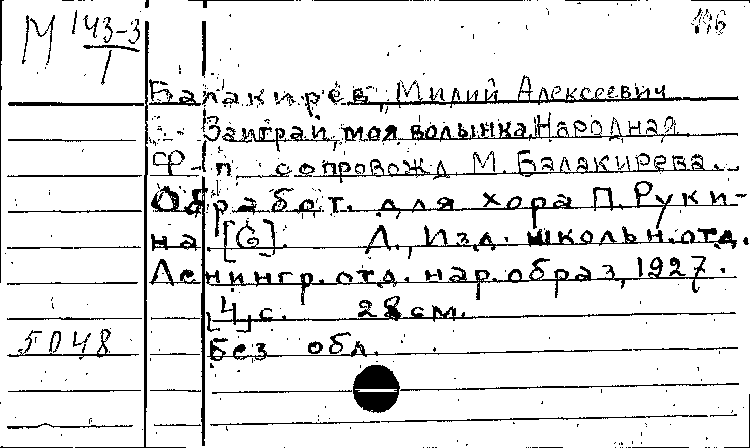 116
М 143-3
1
Балакирев, Милий Алексеевич
Заиграй, моя волынка. Народная.
Ф-п. сопровожд М. Балакирева.
Обработ. для хора П. Руки-
на. [G]. Л., Изд. школьн. отд.
Ленингр. отд. нар. образ, 1927.
[4] с. 28 см.
5048 без обл.